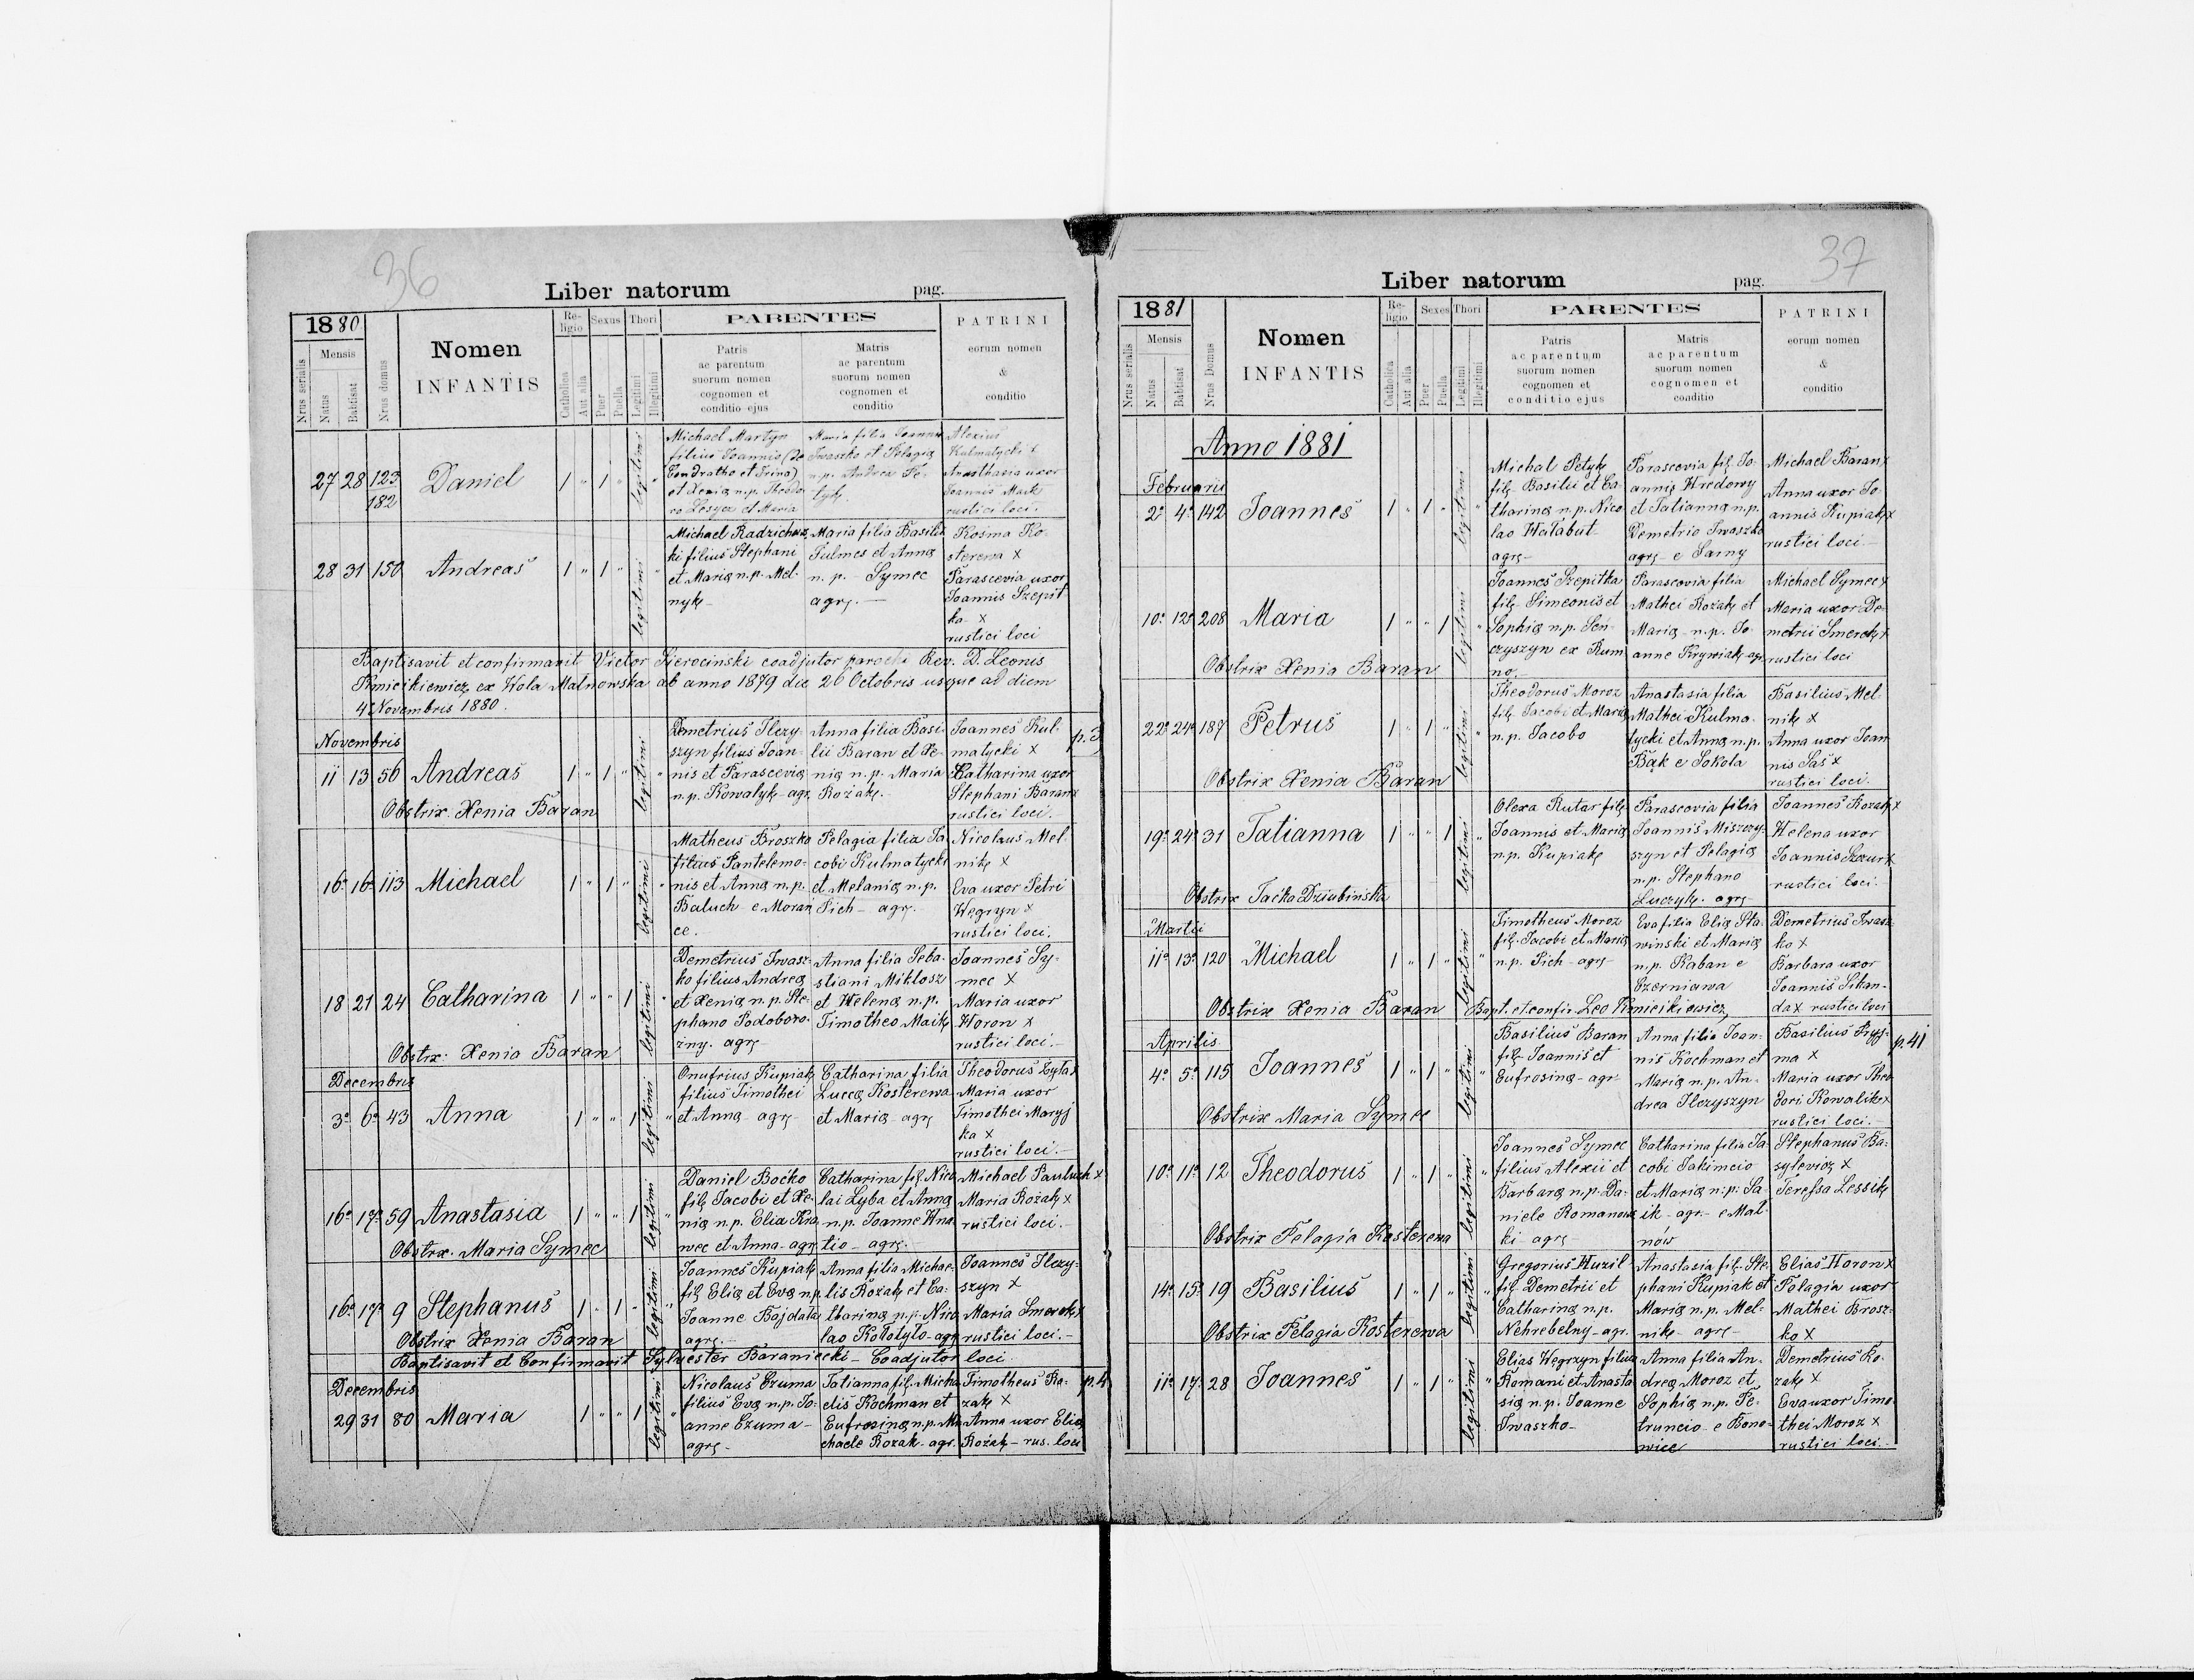 36
Liber natorum pag.
1880
Nrus serialis
Mensis
Natus
Babtisat
Nrus domus
Nomen
INFANTIS
Re-
ligio
Catholica
Aut alia
Sexus
Puer
Puella
Thori
Legitimi
Illegitimi
PARENTES
Patris
ac parentum
suorum nomen
cognomen et
conditio ejus
Matris
ac parentum
suorum nomen
cognomen et
conditio
PATRINI
eorum nomen
&
conditio
27 28 123
182
Daniel
1 " 1 "
legitimi
Michael Martyn
filius Joannis (de
Condratho et Irina)
et Xenia n.p. Theodo
ro Lesycz et Maria
Maria filia Joannis
Iwaszko et Pelagia
n.p. Andrea Pe-
tyk.
Alexius
Kulmatycki x
Anasthasia uxor
Joannis Maik
rustici loci.
28 31 150 Andreas 1 " 1 "
legitimi
Michael Radzichow
ki filius Stephani
et Maria n.p. Mel-
nyk
Maria filia Basilii
Fulmes et Anna
n.p. Symec
agr.
Kosma Ko-
sterewa x
Parascevia uxor
Joannis Szepit
ka x
rustici loci
Baptisavit et confirmavit Victor Sierocinski coadjutor parochi Rev. D. Leonis
Kmicikiewicz ex Wola Malnowska ab anno 1879 die 26 Octobris usque ad diem
4 Novembris 1880.
Novembris
11 13 56 Andreas 1 " 1 "
Obstrix Xenia Baran
legitimi
Demetrius Ilczy-
szyn filius Joan-
nis et Parascevia
n.p. Kowalyk agr.
Anna filia Basi-
lii Baran et Xe-
nia n.p. Maria
Rożak.
Joannes Kul-
matycki x
Catharina uxor
Stephani Baran x
rustici loci.
p.3
16 16 113 Michael 1 " 1 "
legitimi
Matheus Broszko
filius Pantelemo-
nis et Anna n.p.
Baluch e Morań
ce.
Pelagia filia Ja-
cobi Kulmatycki
et Melania n.p.
Pich - agr.
Nicolaus Mel-
nik x
Eva uxor Petri
Węgryn x
rustici loci.
18 21 24 Catharina 1 " " 1
Obstrx: Xenia Baran
legitimi
Demetrius Iwasz-
ko filius Andrea
et Xenia n.p. Ste-
phano Podoboro-
zny. agr.
Anna filia Seba-
stiani Miklosz
et Helena n.p.
Timotheo Maik
Joannes Sy-
mec x
Maria uxor
Horon x
rustici loci.
Decembris
3 6 43 Anna 1 " " 1
legitimi
Onufrius Kupiak
filius Timothei
et Anna - agr.
Catharina filia
Lucca Kosterewa
et Maria - agr.
Theodorus Zyla x
Maria uxor
Timothei Maryj
ka x
rustici loci.
16 17 59 Anastasia 1 " " 1
Obstrx. Maria Symec
legitimi
Daniel Boćko
fil. Jacobi et Xe-
nia n.p. Elia Kra
wec et Anna - agr.
Catharina fil. Nico
lai Lyba et Anna
n.p. Joanne Hna
tio - agr.
Michael Pauluch x
Maria Rożak x
rustici loci.
16 17 9 Stephanus 1 " 1 "
Obstrix Xenia Baran
legitimi
Joannes Kupiak
fil. Elia et Eva n.p.
Joanne Bojdała
agr.
Anna filia Michae-
lis Rożak et Ca-
tharina n.p. Nico
lao Kołotyło - agr.
Joannes Ilczy-
szyn x
Maria Smerek x
rustici loci.
Baptisavit et Confirmavit Sylvester Baraniecki - Coadjutor loci
Decembris
29 31 80 Maria 1 " " 1
legitimi
Nicolaus Czuma
filius Eva n.p. Jo-
anne Czuma -
agr.
Tatianna fil. Micha
elis Kochman et
Eufrosina n.p. Mi
chaele Kozak - agr.
Timotheus Ro-
zak x
Anna uxor Elia
Rożak - rus. loci
p.4
37
Liber natorum pag.
1881
Nrus serialis
Mensis
Natus
Babtisat
Nrus Domus
Nomen
INFANTIS
Re-
ligio
Catholica
Aut alia
Sexes
Puer
Puella
Thori
Legitimi
Illegitimi
PARENTES
Patris
ac parentum
suorum nomen
cognomen et
conditio ejus
Matris
ac parentum
suorum nomen
cognomen et
conditio
PATRINI
eorum nomen
&
conditio
Anno 1881
Februarii
2 4 142 Joannes 1 " 1 "
legitimi
Michal Petyk
fil. Basilii et Ca-
tharina n.p. Nico
lao Hałabut
agr.
Parascevia fil. Jo-
annis Hredowy
et Tatianna n.p.
Demetrio Iwaszko
agr. e Sarny
Michael Baran x
Anna uxor Jo-
annis Kupiak x
rustici loci
10 12 208 Maria 1 " " 1
Obstrix Xenia Baran
legitimi
Joannes Szepitka
fil. Simeonis et
Sophia n.p. Sen-
czyszyn ex Rum
no.
Parascevia filia
Mathei Rożak et
Maria n.p. Jo-
anne Krywiak agr.
Michael Symec x
Maria uxor De-
metrii Smerek x
rustici loci
22 24 187 Petrus 1 " 1 "
Obstrix Xenia Baran
legitimi
Theodorus Moroz
fil. Jacobi et Maria
n.p. Jacobo
Anastasia filia
Mathei Kulma-
tycki et Anna n.p.
Bąk e Sokola
Basilius Mel-
nik x
Anna uxor Joan
nis Saś x
rustici loci.
19 24 31 Tatianna 1 " " 1
Obstrix Taćka Dziubinska
legitimi
Olexa Rutar fil.
Joannis et Maria
n.p. Kupiak
Parascevia filia
Joannis Miszczy-
szyn et Pelagia
n.p. Stephano
Łuczyk. agr.
Joannes Kozak x
Helena uxor
Joannis Szczur x
rustici loci.
Martii
11 13 120 Michael 1 " 1 "
Obstrix Xenia Baran Bapt. et confir. Leo Kmicikiewicz
legitimi
Timotheus Moroz
fil. Jacobi et Maria
n.p. Pich - agr.
Eva filia Elia Sta-
winski et Maria
n.p. Kaban e
Czerniawa
Demetrius Iwasz
ko x
Barbara uxor
Joannis Sikan-
da x rustici loci
Aprilis
4 5 115 Joannes 1 " 1 "
Obstrix Maria Symec
legitimi
Basilius Baran
fil. Joannis et
Eufrosina - agr.
Anna filia Joan-
nis Kochman et
Maria n.p. An-
drea Ilczyszyn
Basilius Pryj-
ma x
Maria uxor Theo
dori Kowalik x
rustici loci.
p.41
10 11 12 Theodorus 1 " 1 "
Obstrix Pelagia Kosterewa
legitimi
Joannes Symec
filius Alexii et
Barbara n.p. Da-
niele Romanow
ki agr.
Catharina filia Ja-
cobi Jakimcio
et Maria n.p. Sa-
ik - agr. e Mal-
nów
Stephanus Ba-
sylevicz x
Teressa Lessik
14 15 19 Basilius 1 " 1 "
Obstrix Pelagia Kosterewa
legitimi
Gregorius Huzil
fil. Demetrii et
Catharina n.p.
Nehrebelny - agr.
Anastasia fil. Ste-
phani Kupiak et
Maria n.p. Mel-
nik - agr.
Elias Horon x
Pelagia uxor
Mathei Brosz-
ko x
11 17 28 Joannes 1 " 1 "
legitimi
Elias Węgrzyn filius
Romani et Anasta
sia n.p. Joanne
Iwaszko
Anna filia An-
drea Moroz et
Sophia n.p. Pe-
truncio e Bono-
wice
Demetrius Ko-
zak x
Eva uxor Timo-
thei Moroz x
rustici loci.